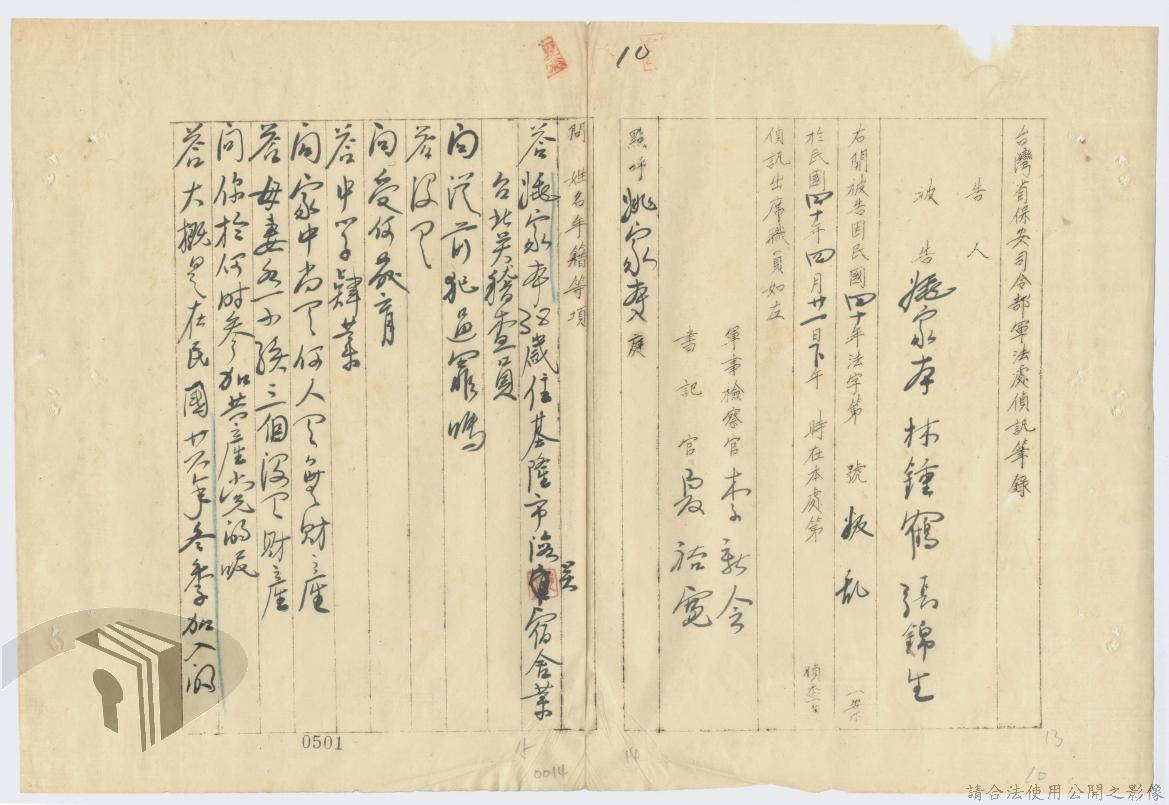 10
台灣省保安司令部軍法處偵訊筆錄
告人
被告 姚家本 林鍾鶴 張錦生
右開被告因民國四十年法字第 號 叛乱 一案
於民國四十年四月廿一日下午 時在本處第 偵查
偵訊出席職員如左
軍事檢察官 李新会
書記官 祜寬
點呼姚家本入庚
問 姓名年籍等項
答 姚家本 歲住基隆市海關宿舍業
台北关稽查員
问 從前犯过罪嗎
答 沒有
问 受何教育
答 中学肄業
问 家中尚有何人有無財產
答 母妻和一小孩三個沒有財產
问 你於何时参加共產党的呢
答 大概是在民國廿六年冬季加入的
0501
15
0014
14
13
10
請合法使用公開之影像